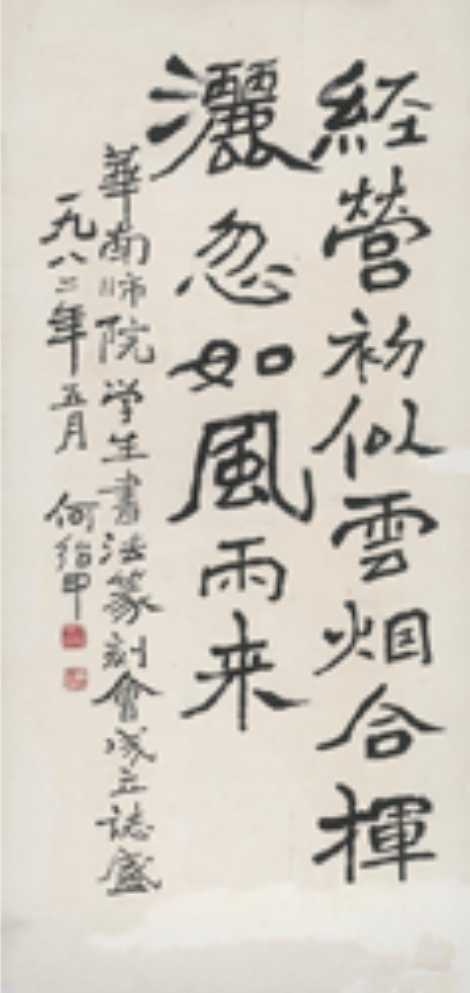 経營初似雲烟合揮
灑忽如風雨来
華南师院学生書法篆刻會成立誌盛
一九八二年五月 何紹甲